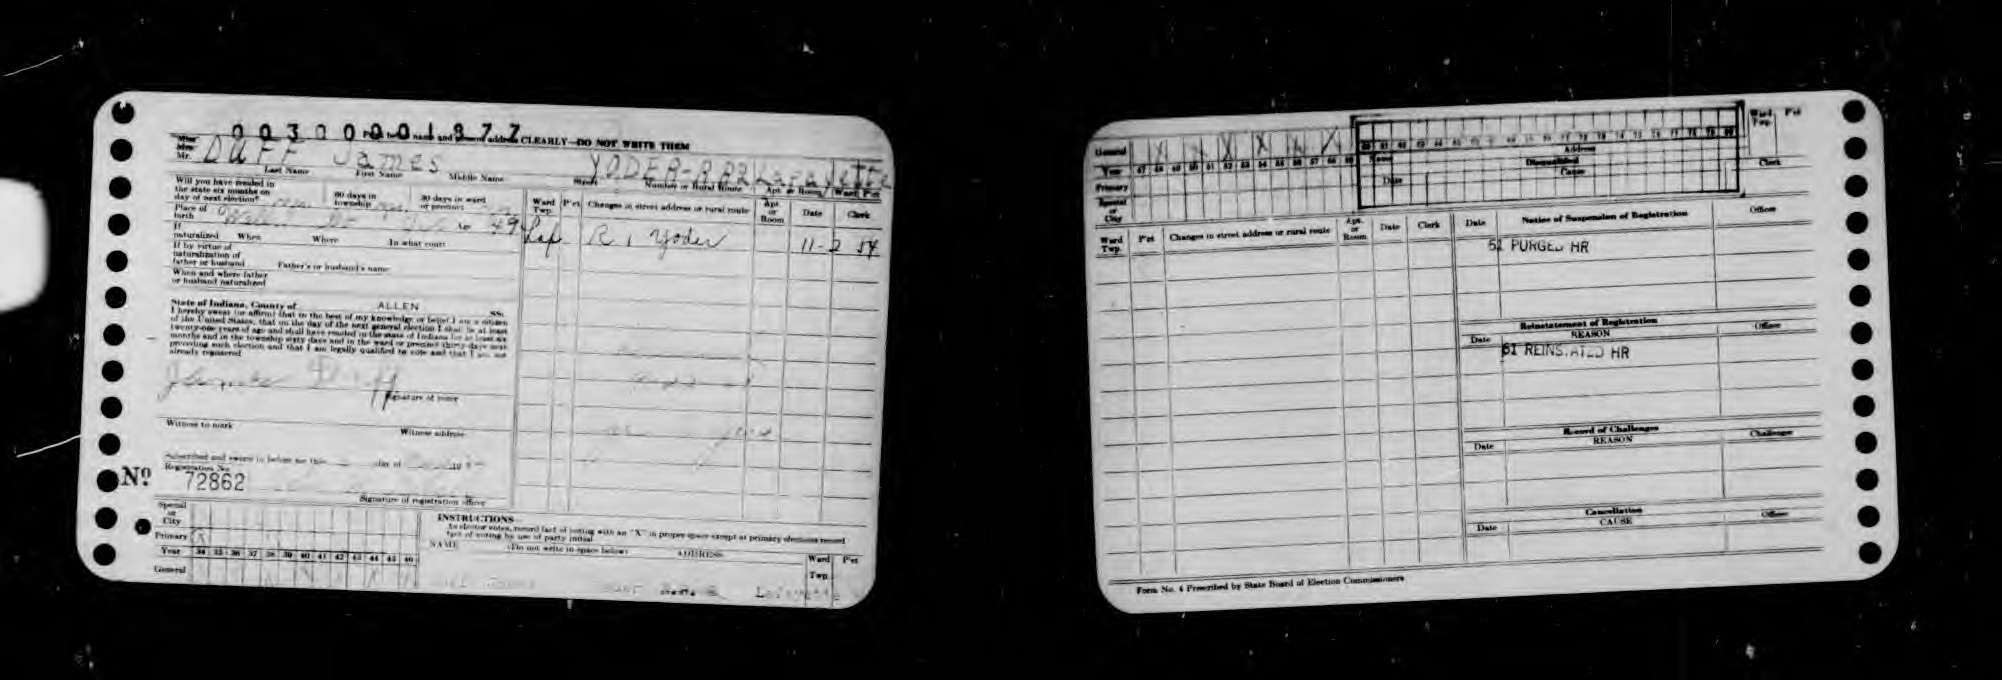 00300001877
Print name and present address CLEARLY—DO NOT WRITE THEM
Miss
Mrs.
Mr. DUFF James YODER-RR2 Lafayette
Last Name First Name Middle Name Street Number or Rural Route Apt. or Room Ward P'ct
Will you have resided in
the state six months on
day of next election? 60 days in
township 30 days in ward
or precinct
Place of
birth Age 49
If
naturalized When Where In what court
If by virtue of
naturalization of
father or husband Father's or husband's name
When and where father
or husband naturalized
State of Indiana, County of ALLEN SS:
I hereby swear (or affirm) that to the best of my knowledge or belief I am a citizen
of the United States, that on the day of the next general election I shall be at least
twenty-one years of age and shall have resided in the state of Indiana for at least six
months and in the township sixty days and in the ward or precinct thirty days next
preceding such election and that I am legally qualified to vote and that I am not
already registered
James Duff
Signature of voter
Witness to mark Witness address
Subscribed and sworn to before me this day of 19
Registration No.
Nº 72862
Signature of registration officer
Ward
Twp. P'ct Changes in street address or rural route Apt.
or
Room Date Clerk
Laf. R 1 Yoder 11-2 54
Special
or
City
Primary X
Year 34 35 36 37 38 39 40 41 42 43 44 45 46
General
INSTRUCTIONS—
As elector votes, record fact of voting with an "X" in proper space except at primary elections record
fact of voting by use of party initial
NAME (Do not write in space below) ADDRESS Ward P'ct
Twp.
Lafayette
General X X X X X X
Year 47 48 49 50 51 52 53 54 55 56 57 58 59
Primary
Special
or
City
Name Address
Disqualified
Date Cause Clerk
Ward
Twp. P'ct
Ward
Twp. P'ct Changes in street address or rural route Apt.
or
Room Date Clerk
Date Notice of Suspension of Registration Officer
52 PURGED HR
Reinstatement of Registration
Date REASON Officer
51 REINSTATED HR
Record of Challenges
Date REASON Challenger
Cancellation
Date CAUSE Officer
Form No. 4 Prescribed by State Board of Election Commissioners